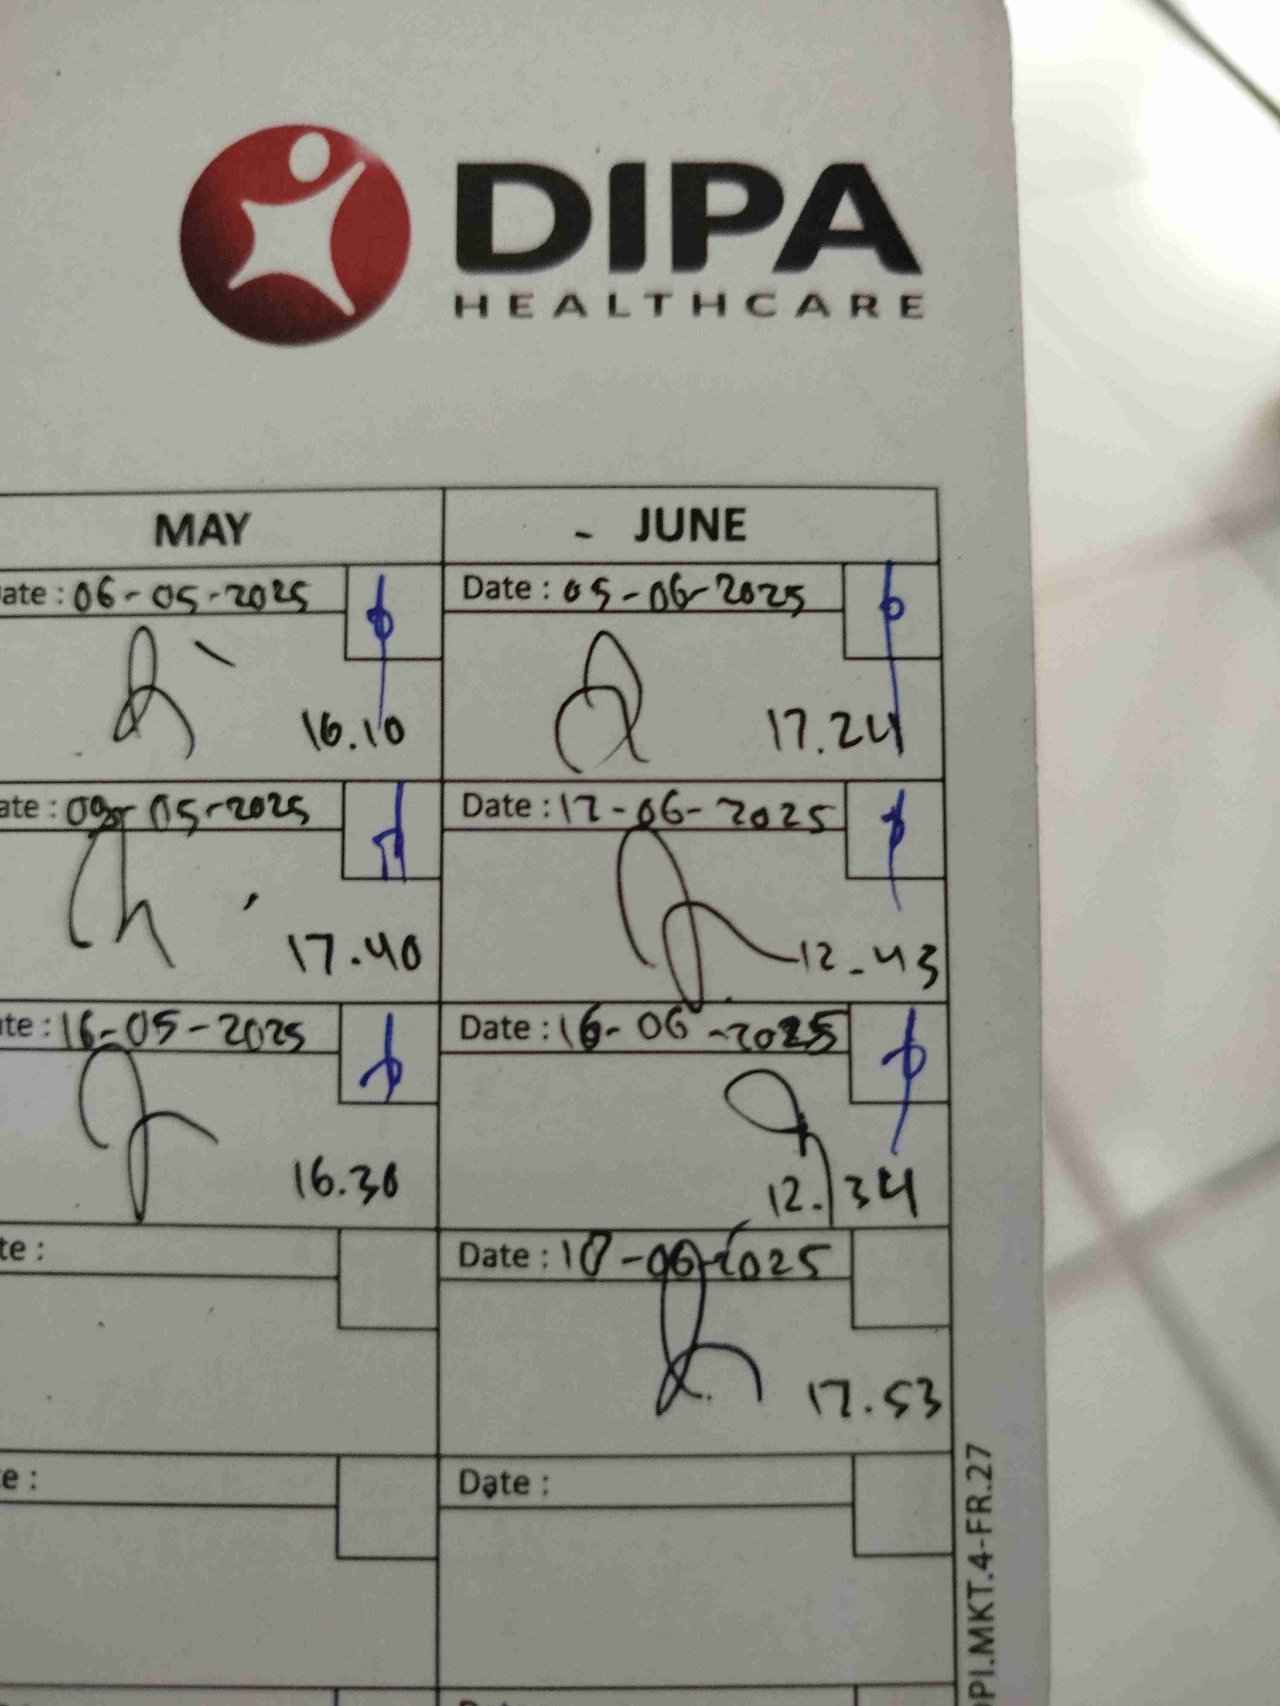 DIPA
HEALTHCARE
MAY
- JUNE
ate : 06-05-2025
Date : 05-06-2025
16.10
17.24
ate : 09-05-2025
Date : 12-06-2025
17.40
12.43
te : 16-05-2025
Date : 16-06-2025
16.30
12.34
te :
Date : -06-2025
17.53
e :
Date :
PI.MKT.4-FR.27